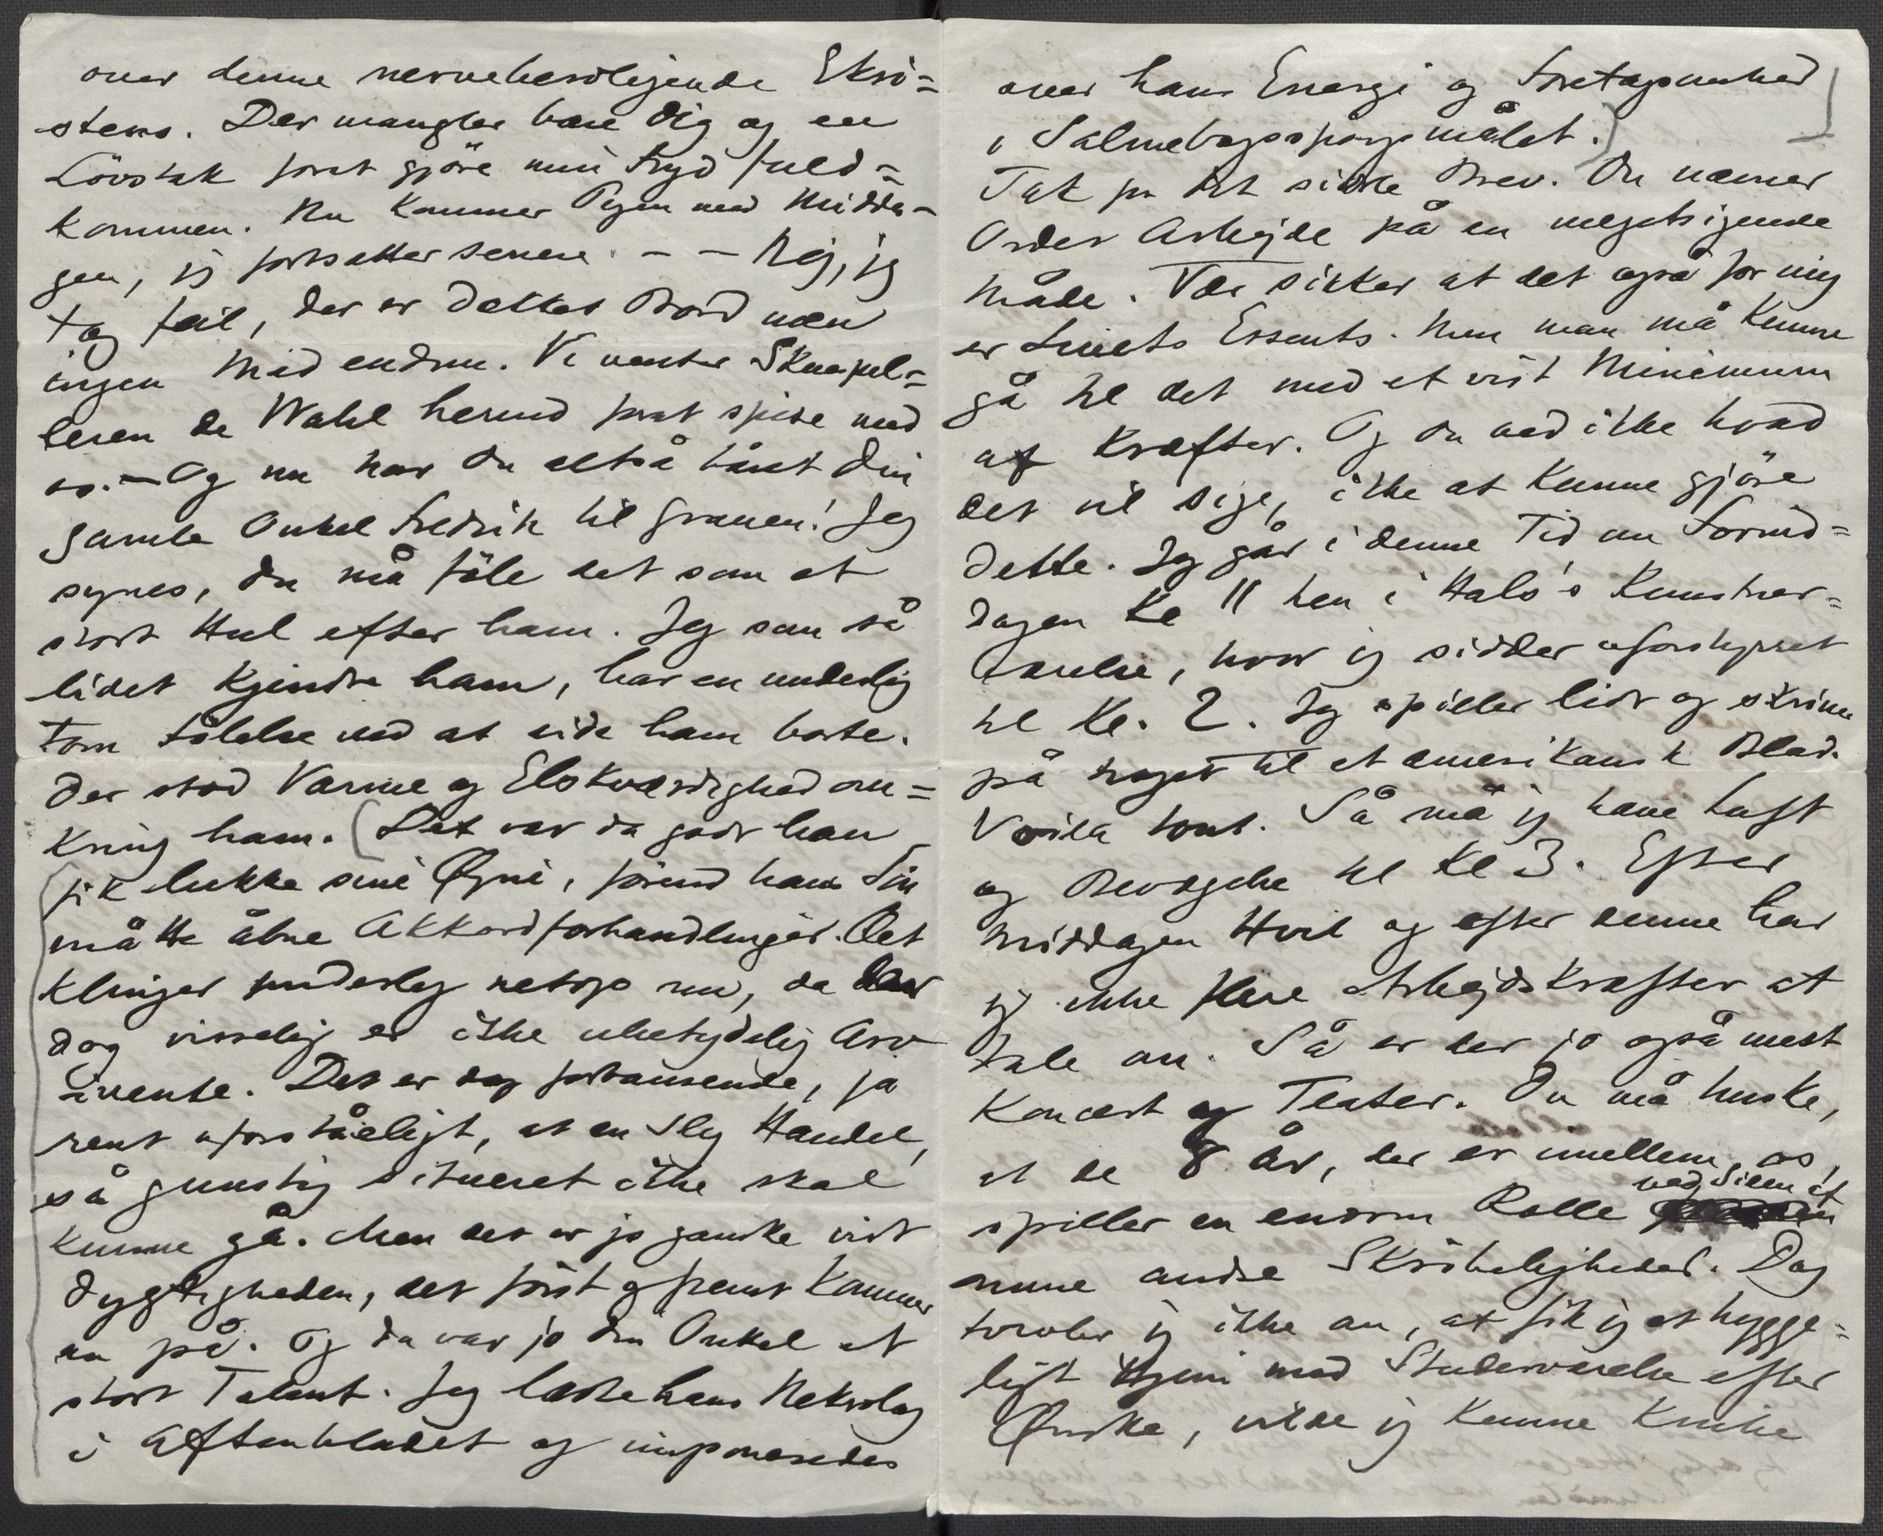 over denne nerveberoligende Eksi=
stens. Der mangler bare Dig og en
Lövstak forat gjöre min Fryd fuld=
kommen. Nu kommer Pigen med Midda-
gen, jeg fortsætter senere. — — Nej, jeg
tog feil, der er dækket Bord men
ingen Mad endnu. Vi venter Skuespil=
leren de Wahl herind forat spise med
os. — Og nu har Du altså båret din
gamle Onkel Fredrik til Graven! Jeg
synes, du må föle det som et
stort Hul efter ham. Jeg som så
lidet kjendte ham, har en underlig
tom Fölelse ved at vide ham borte.
Der stod Varme og Elskværdighed om=
kring ham. (Det var da godt han
fik lukke sine Øine, förend hans Sön
måtte åbne Akkordforhandlinger. Det
klinger underlig netop nu, da der
dog visselig er ikke ubetydelig Arv
ivente. Det er dog forbausende, ja
rent uforståeligt, at en slig Handel,
så gunstig situeret ikke skal
kunne gå. Men det er jo ganske vist
Dygtigheden, det först og fremst kommer
an på. Og da var jo din Onkel et
stort Talent. Jeg læste hans Nekrolog
i Aftenbladet og imponeredes
over hans Energi og Foretagsomhed
i Salmebogsspörgsmålet.)
Tak for dit sidste Brev. Du nævner
Ordet Arbejde på en megetsigende
Måde. Vær sikker at det også for mig
er Livets Essents. Men man må kunne
gå til det med et vist Minimum
af Kræfter. Og du ved ikke hvad
det vil sige, ikke at kunne gjöre
dette. Jeg går i denne Tid om Formid=
dagen Kl 11 hen i Hals's Kunstner=
værelse, hvor jeg sidder uforstyrret
til Kl. 2. Jeg spiller lidt og skriver
på noget til et amerikansk Blad.
Voila tout. Så må jeg have Luft
og Bevægelse til Kl 3. Efter
Middagen Hvil og efter denne har
jeg ikke flere Arbejdskræfter at
tale om. Så er der jo også mest
Koncert og Teater. Du må huske,
at de 8 År, der er imellem os,
spiller en enorm Rolle ved Siden af
mine andre Skröbeligheder. Dog
tvivler jeg ikke om, at fik jeg et hygge=
ligt Hjem med Studerværelse efter
Ønske, vilde jeg kunne knibe